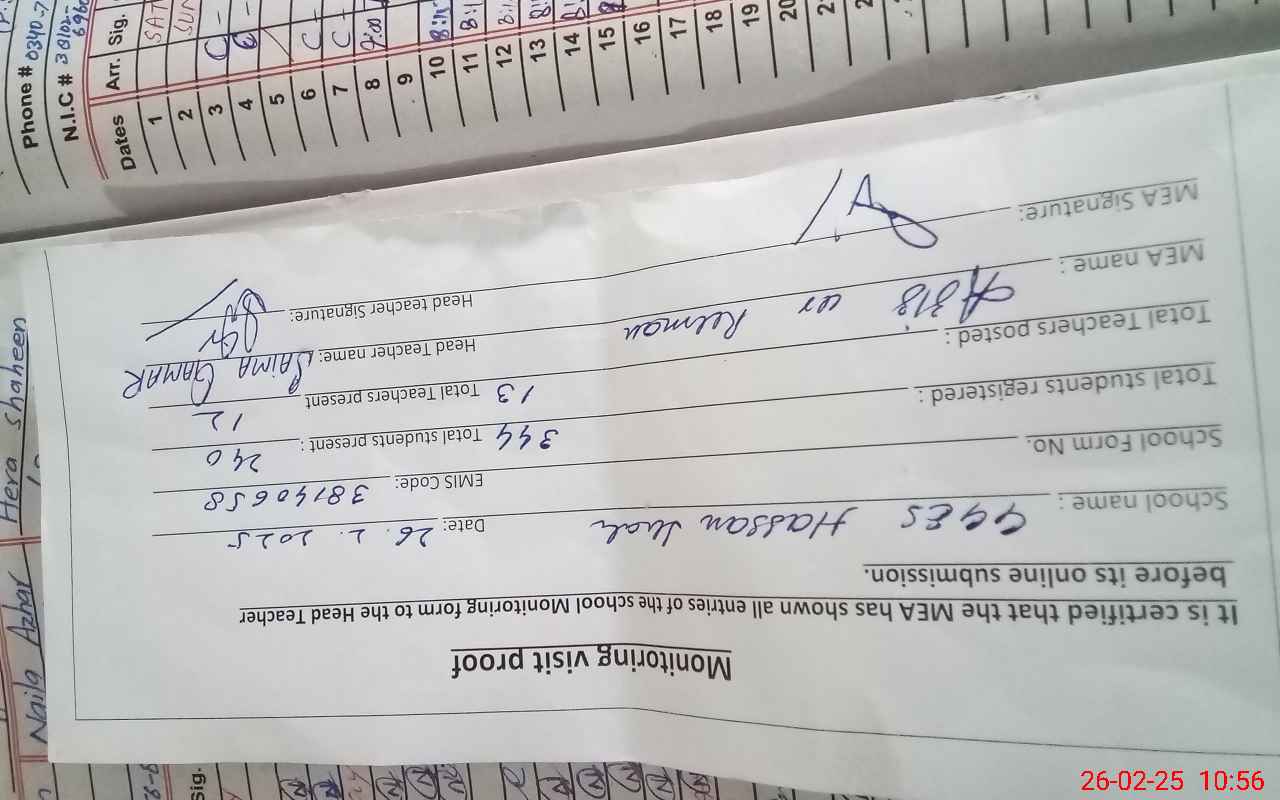 Monitoring visit proof
It is certified that the MEA has shown all entries of the school Monitoring form to the Head Teacher
before its online submission.
School name : GGES Hassan Date: 26. 2. 2025
School Form No. EMIS Code: 38140658
Total students registered : 344 Total students present : 240
Total Teachers posted : 13 Total Teachers present 12
MEA name : ur Rehman Head Teacher name: SAIMA QAMAR
MEA Signature: Head teacher Signature:
Phone # 0340-7
N.I.C # 38102-
Dates Arr. Sig.
1 SAT
2 SUN
3 C -
4 C -
5
6 C -
7 C -
8
9
10
11
12
13
14
15
16
17
18
19
20
Hera Shaheen
Naila Azhar
Sig.
26-02-25 10:56